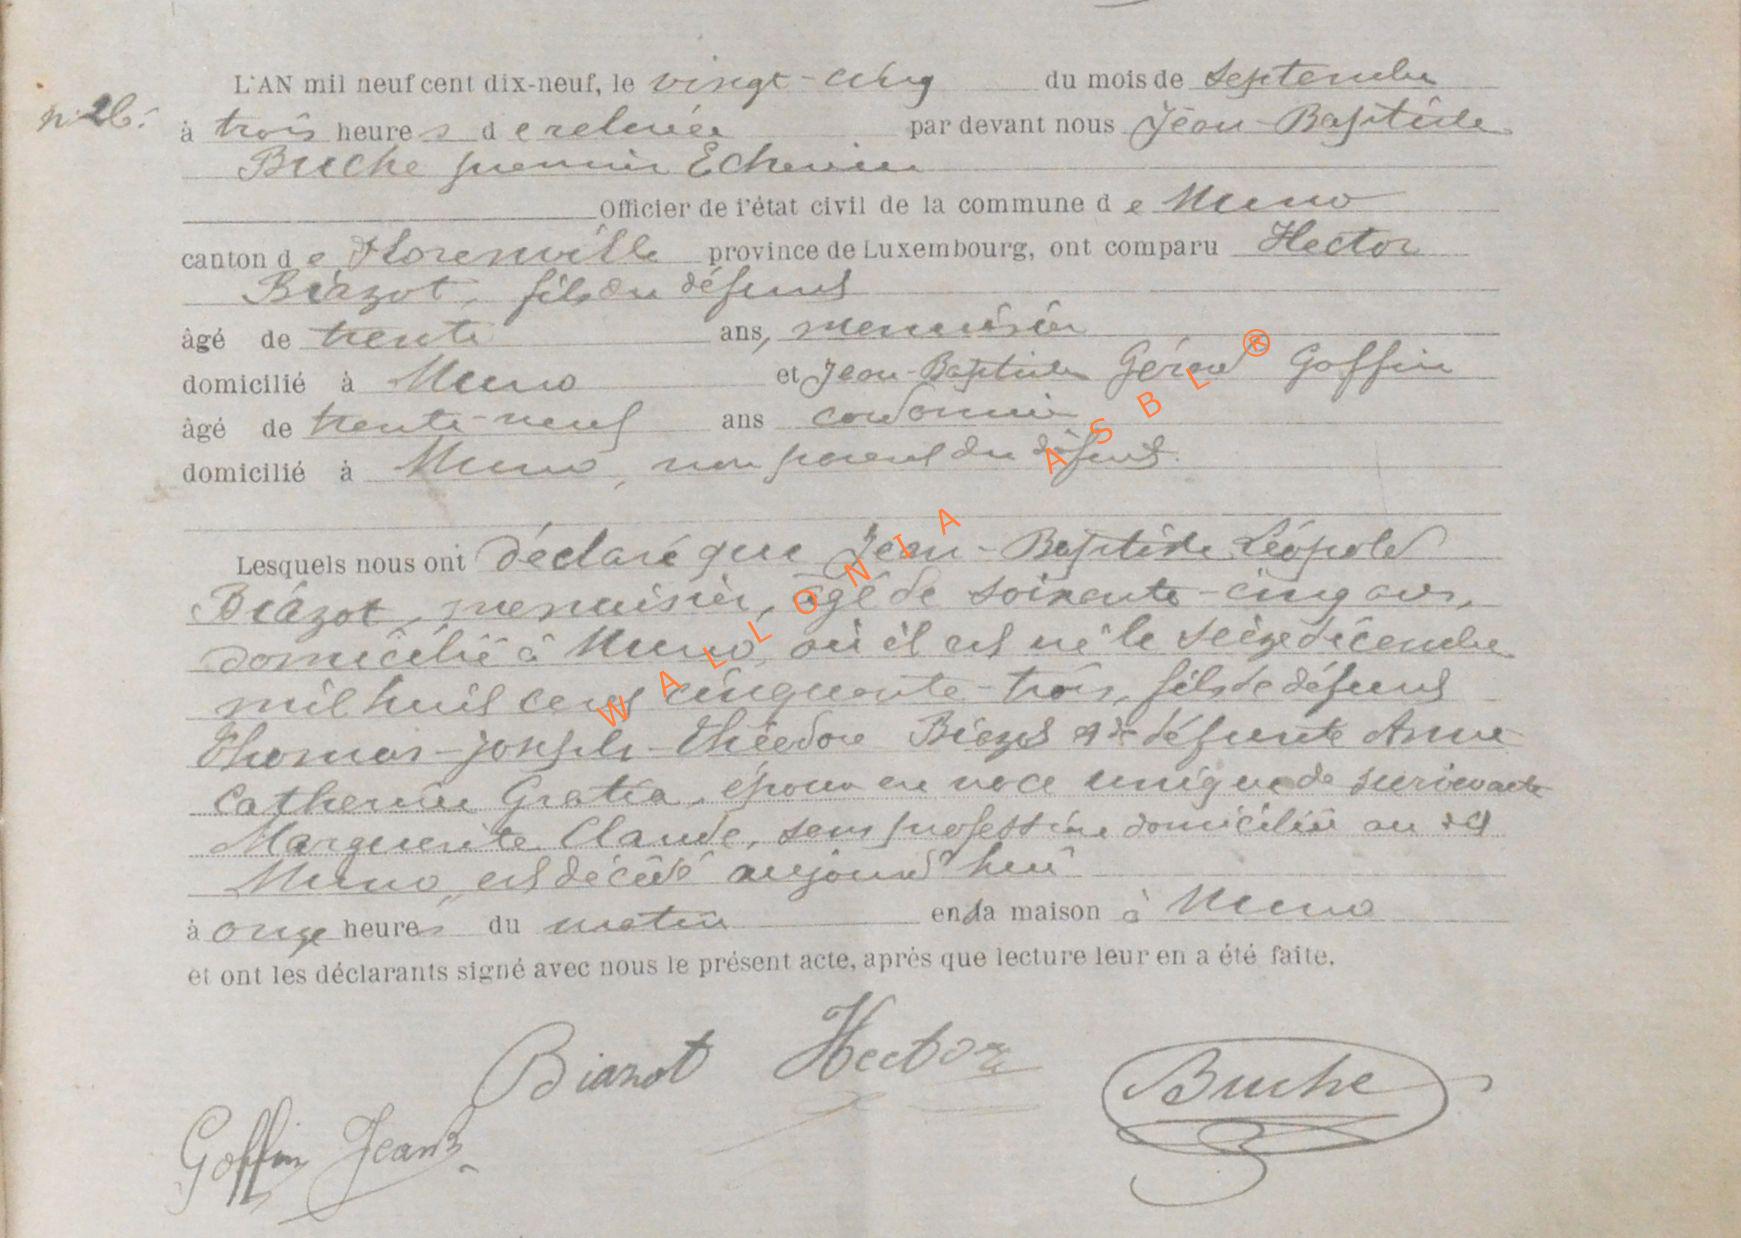 L'AN mil neuf cent dix-neuf, le vingt-cinq du mois de Septembre
n° 26.
à trois heures de relevée par devant nous Jean-Baptiste
Buche premier Echevin
Officier de l'état civil de la commune de Muno
canton de Florenville province de Luxembourg, ont comparu Hector
Biazot, fils du défunt
âgé de trente ans, menuisier
domicilié à Muno et Jean-Baptiste Gérard Goffin
âgé de trente-neuf ans cordonnier
domicilié à Muno, non parent du défunt.
Lesquels nous ont déclaré que Jean-Baptiste Léopold
Biazot, menuisier, âgé de soixante-cinq ans,
domicilié à Muno, où il est né le seize décembre
mil huit cent cinquante-trois, fils de défunt
Thomas-Joseph-Théodore Biazot et de défunte Anne
Catherine Gratia, époux en noce unique de survivante
Marguerite Claude, sans profession domiciliée au dit
Muno, est décédé aujourd'hui
à onze heures du matin en la maison à Muno
et ont les déclarants signé avec nous le présent acte, après que lecture leur en a été faite.
Biazot Hector
Buche
Goffin JeanB
WALLONIA ASBL ®